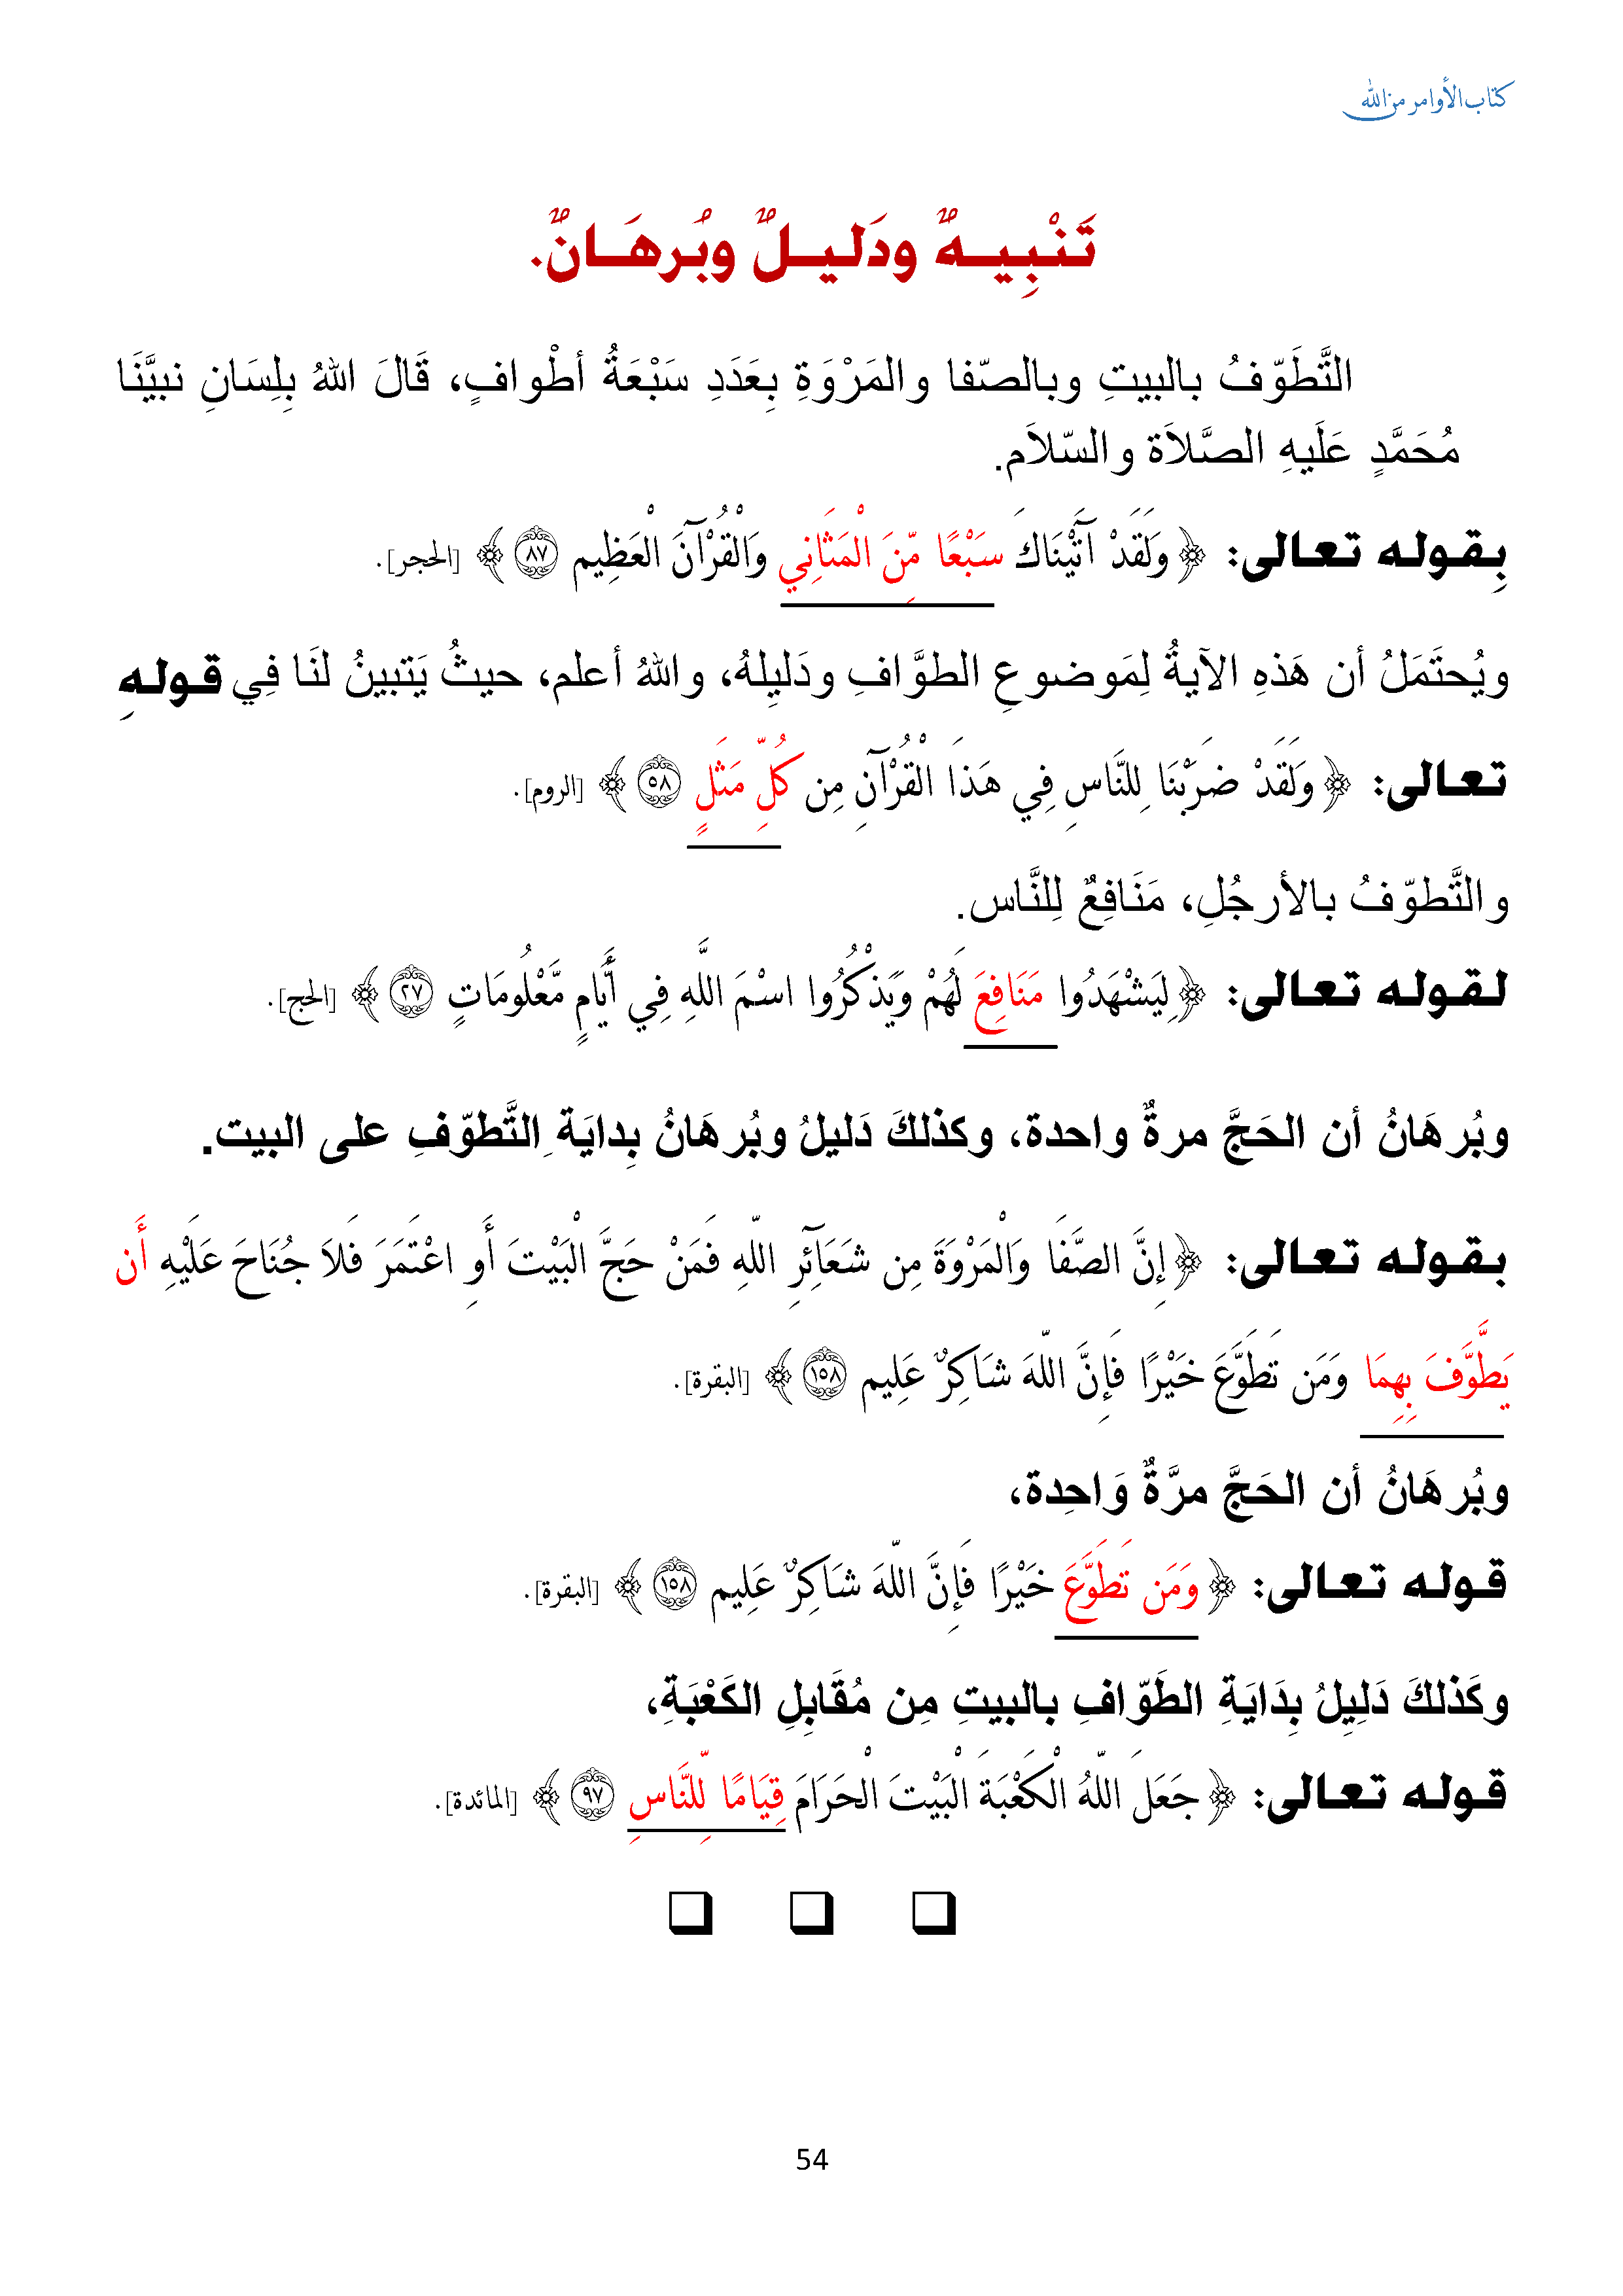 كتاب الأوامر من الله
تَنْبِيـهٌ ودَليـلٌ وبُرهَـانٌ.
التَّطَوّفُ بالبيتِ وبالصّفا والمَرْوَةِ بِعَدَدِ سَبْعَةُ أطْوافٍ، قَالَ اللهُ بِلِسَانِ نبيَّنَا
مُحَمَّدٍ عَلَيهِ الصَّلاَة والسّلاَم.
بِـقـولـه تـعـالى: ﴿ وَلَقَدْ آتَيْنَاكَ سَبْعًا مِّنَ الْمَثَانِي وَالْقُرْآنَ الْعَظِيم ٨٧ ﴾ [الحجر].
ويُحتَمَلُ أن هَذهِ الآيةُ لِمَوضوعِ الطوَّافِ ودَليِلِهُ، واللهُ أعلم، حيثُ يَتبينُ لنَا فِي قـولـهِ
تـعـالى: ﴿ وَلَقَدْ ضَرَبْنَا لِلنَّاسِ فِي هَذَا الْقُرْآنِ مِن كُلِّ مَثَلٍ ٥٨ ﴾ [الروم].
والتَّطوّفُ بالأرجُلِ، مَنَافِعٌ لِلنَّاس.
لـقـولـه تـعـالى: ﴿ لِيَشْهَدُوا مَنَافِعَ لَهُمْ وَيَذْكُرُوا اسْمَ اللَّهِ فِي أَيَّامٍ مَّعْلُومَاتٍ ٢٧ ﴾ [الحج].
وبُرهَانُ أن الحَجَّ مرةٌ واحدة، وكذلكَ دَليلُ وبُرهَانُ بِدايَةِ التَّطوّفِ على البيت.
بـقـولـه تـعـالى: ﴿ إِنَّ الصَّفَا وَالْمَرْوَةَ مِن شَعَآئِرِ اللّهِ فَمَنْ حَجَّ الْبَيْتَ أَوِ اعْتَمَرَ فَلاَ جُنَاحَ عَلَيْهِ أَن
يَطَّوَّفَ بِهِمَا وَمَن تَطَوَّعَ خَيْرًا فَإِنَّ اللّهَ شَاكِرٌ عَلِيم ١٥٨ ﴾ [البقرة].
وبُرهَانُ أن الحَجَّ مرَّةٌ وَاحِدة،
قـولـه تـعـالى: ﴿ وَمَن تَطَوَّعَ خَيْرًا فَإِنَّ اللّهَ شَاكِرٌ عَلِيم ١٥٨ ﴾ [البقرة].
وكَذلكَ دَلِيِلُ بِدَايَةِ الطَوّافِ بالبيتِ مِن مُقَابِلِ الكَعْبَةِ،
قـولـه تـعـالى: ﴿ جَعَلَ اللّهُ الْكَعْبَةَ الْبَيْتَ الْحَرَامَ قِيَامًا لِّلنَّاسِ ٩٧ ﴾ [المائدة].
54